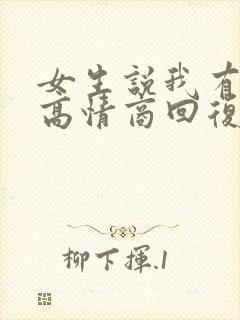 女生説我有
高情商回復
柳下揮.1